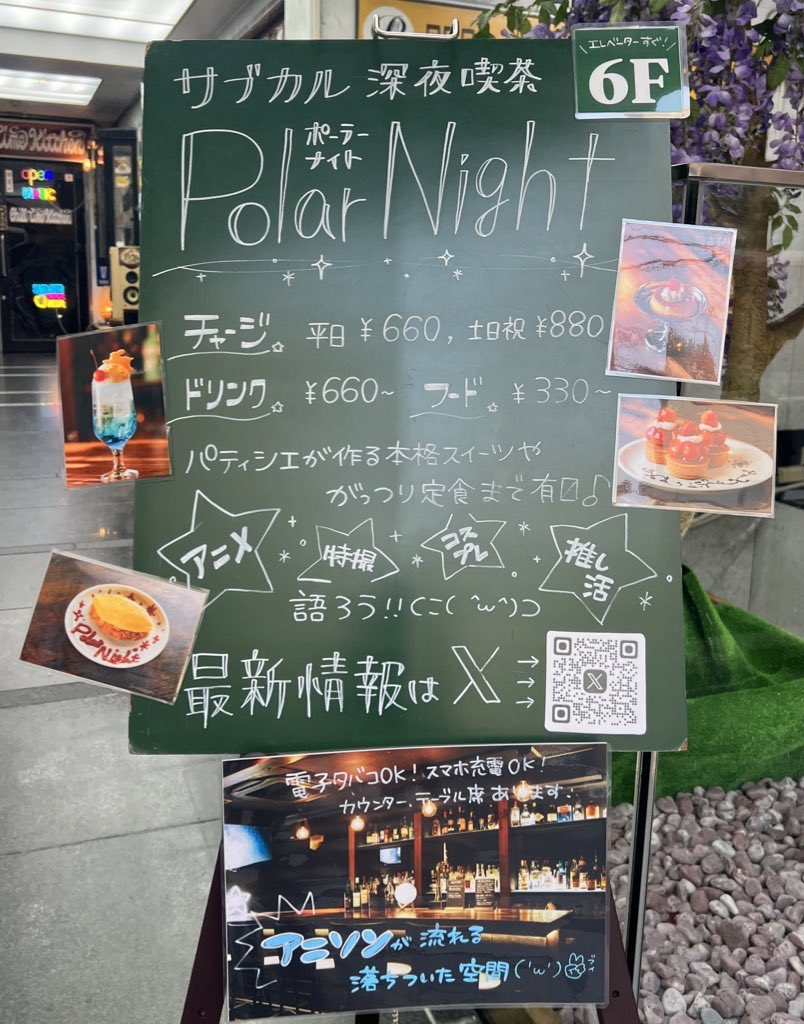 エレベーターすぐ!
6F
サブカル 深夜喫茶
ポーラー
ナイト
Polar Night
チャージ 平日 ¥660, 土日祝 ¥880
ドリンク ¥660~ フード ¥330~
パティシエが作る本格スイーツや
がっつり定食まで有□♪
アニメ 特撮 コスプレ 推し活
語ろう!!⊂ニ( ^ω^)⊃
最新情報は X →
Polar Night
電子タバコOK! スマホ充電OK!
カウンター・テーブル席あります。
アニソンが流れる
落ちついた空間('ω')
open